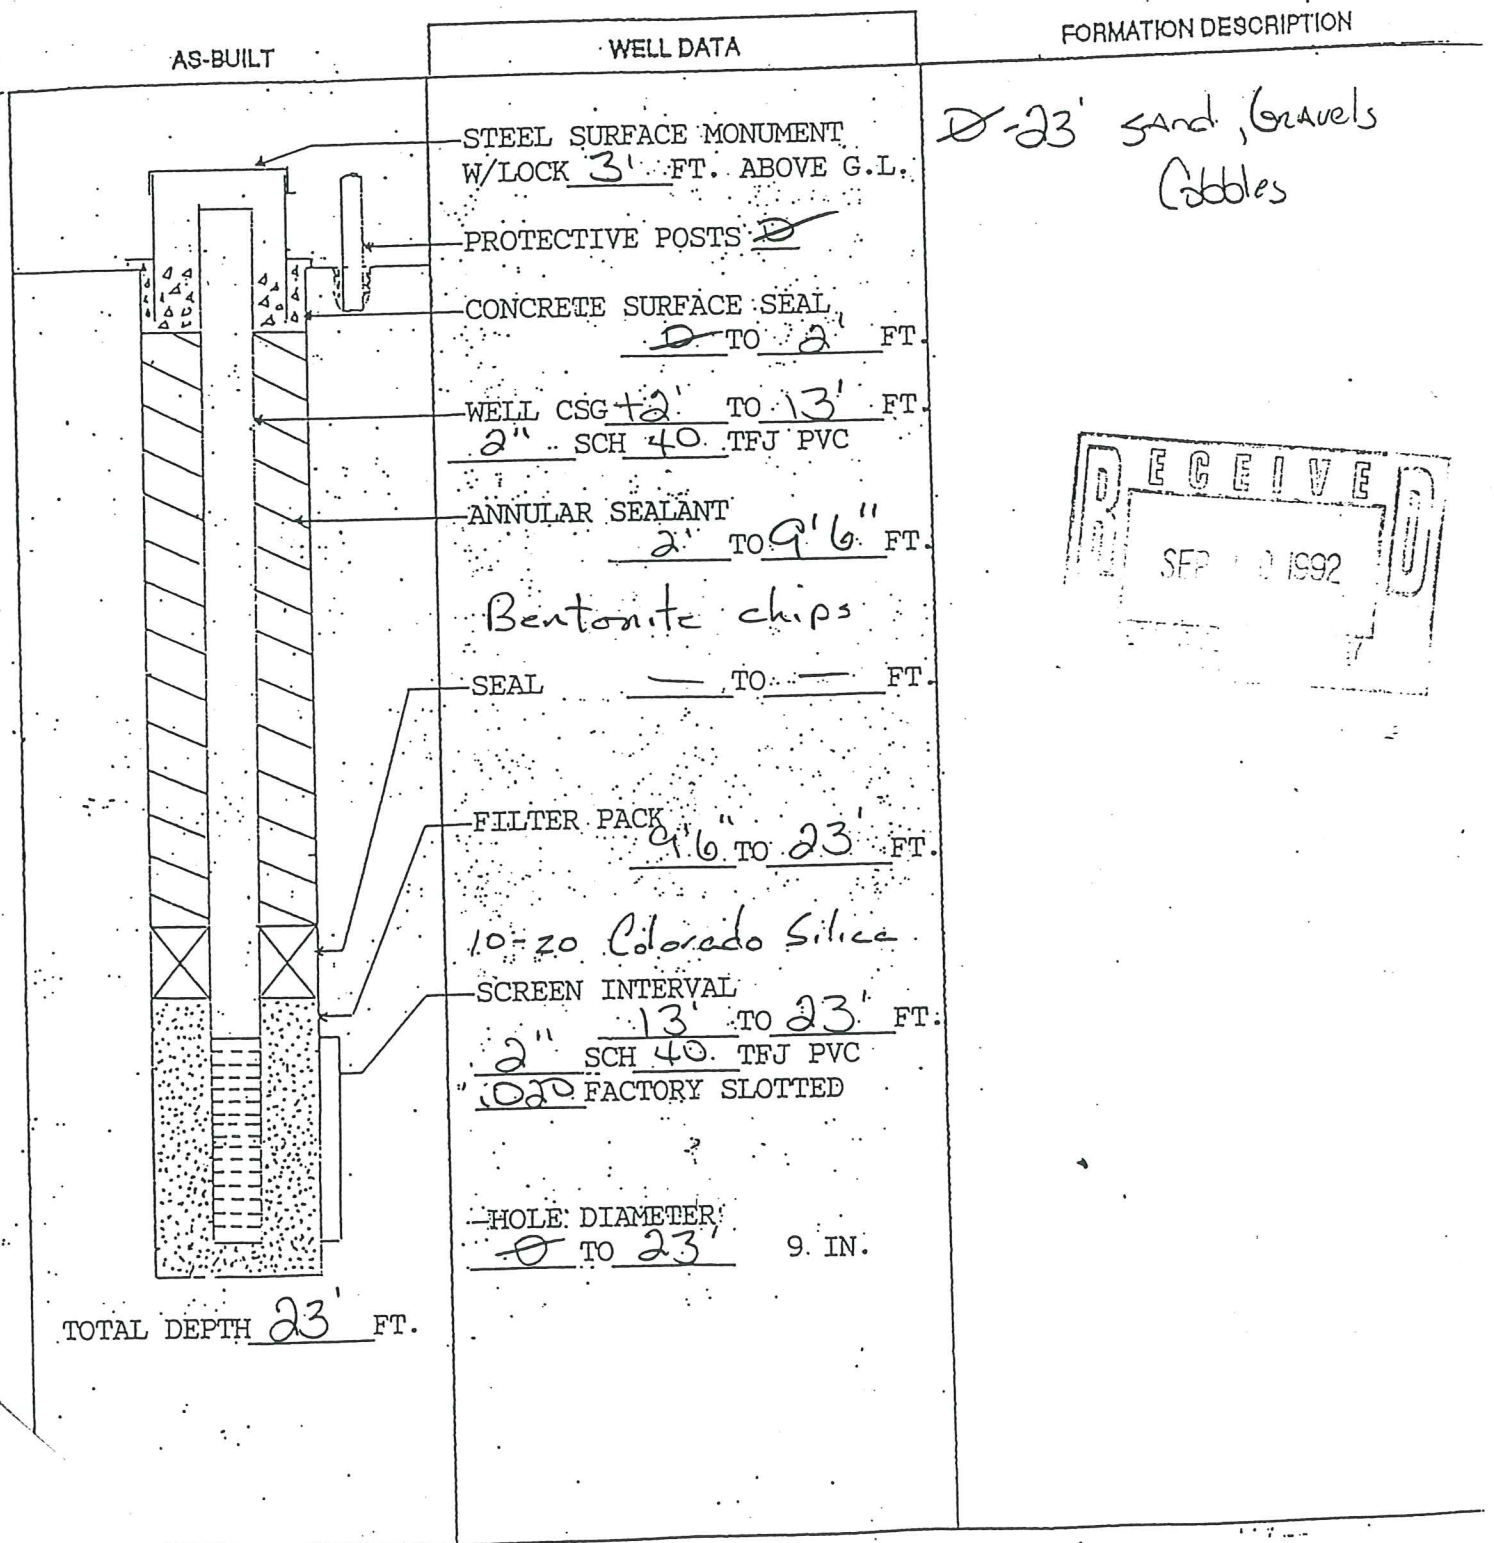 AS-BUILT
WELL DATA
FORMATION DESCRIPTION
STEEL SURFACE MONUMENT
W/LOCK 3' FT. ABOVE G.L.
PROTECTIVE POSTS 0
CONCRETE SURFACE SEAL
0 TO 2' FT.
WELL CSG +2' TO 13' FT.
2" SCH 40 TFJ PVC
ANNULAR SEALANT
2' TO 9'6" FT.
Bentonite chips
SEAL — TO — FT.
FILTER PACK
9'6" TO 23' FT.
10-20 Colorado Silica
SCREEN INTERVAL
13' TO 23' FT.
2" SCH 40 TFJ PVC
.020 FACTORY SLOTTED
HOLE DIAMETER
0 TO 23' 9 IN.
TOTAL DEPTH 23' FT.
0-23' Sand, Gravels
Cobbles
RECEIVED
SEP 1992